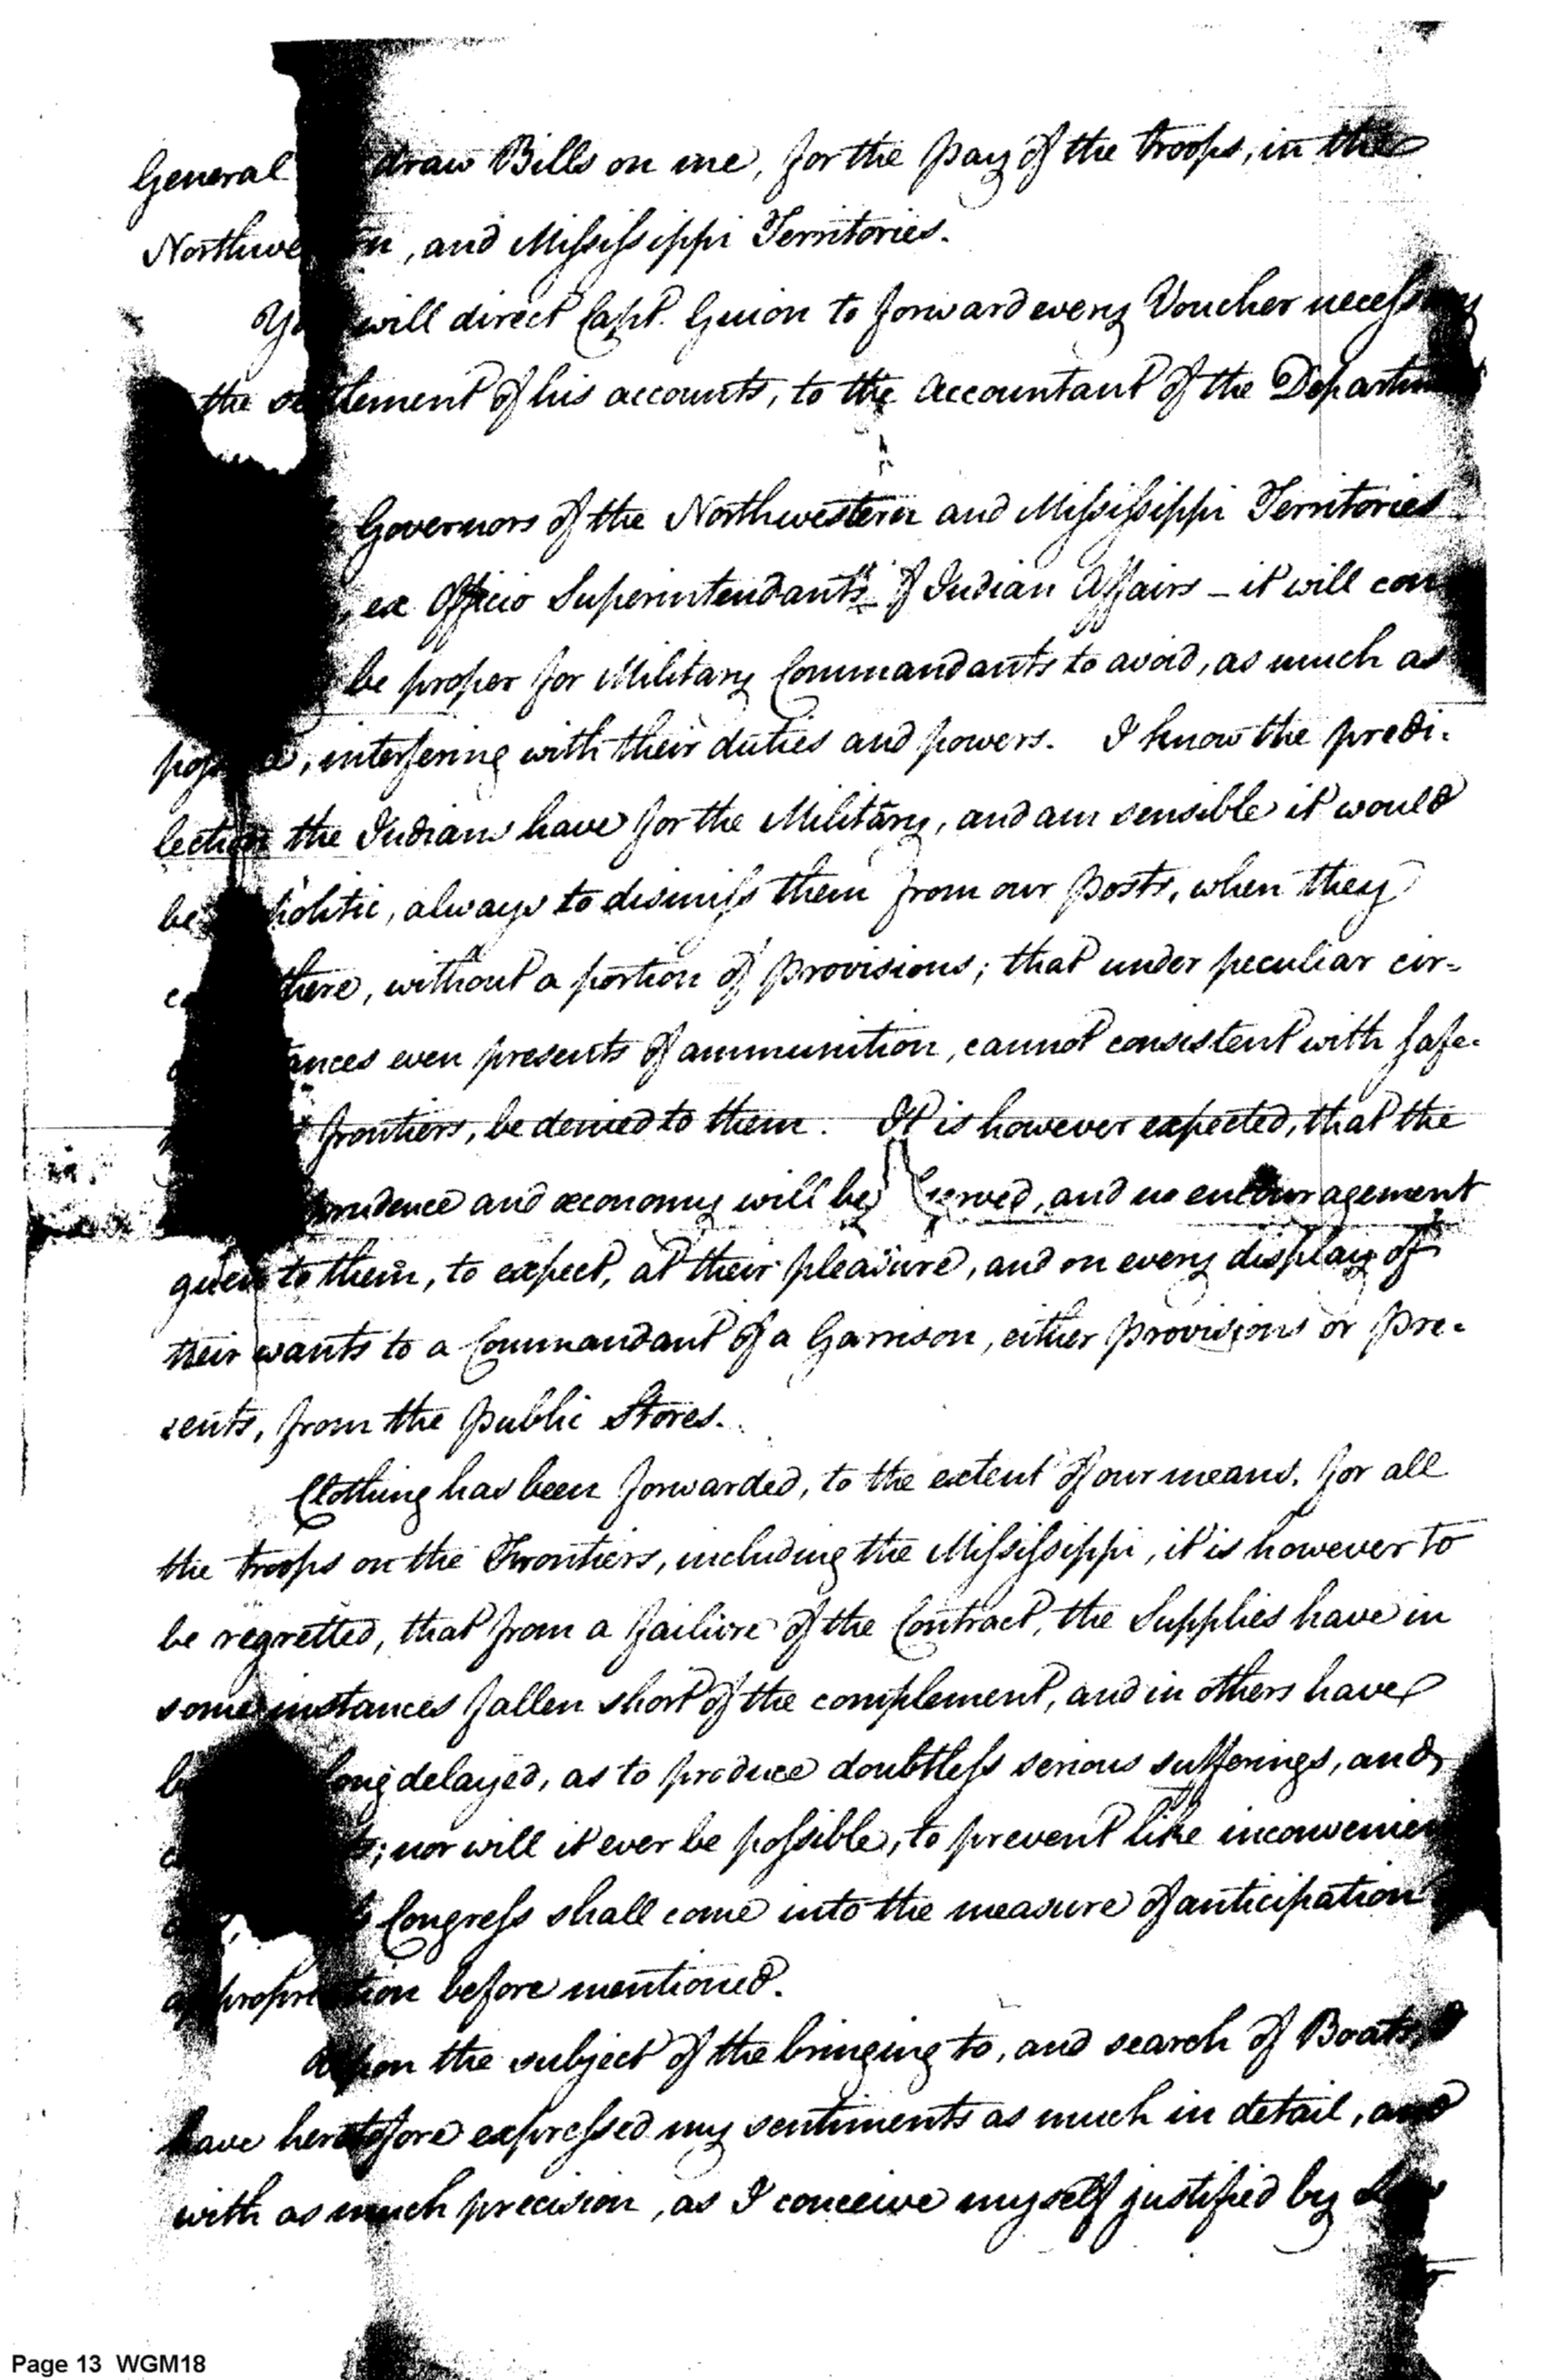 General draw Bills on me, for the pay of the troops, in the
Northwe n, and Mississippi Territories.
You will direct Capt. Guion to forward every Voucher necess
the settlement of his accounts, to the Accountant of the Departm
Governors of the Northwestern and Mississippi Territories
ex Officio Superintendants of Indian Affairs – it will con
be proper for Military Commandants to avoid, as much as
pos e, interfering with their duties and powers. I know the predi-
lection the Indians have for the Military, and am sensible it would
be politic, always to dismiss them from our posts, when they
there, without a portion of provisions; that under peculiar cir=
ances even presents of ammunition, cannot consistent with safe-
frontiers, be denied to them. It is however expected, that the
prudence and œconomy will be served, and no encouragement
given to them, to expect, at their pleasure, and on every display of
their wants to a Commandant of a Garrison, either provisions or pre-
sents, from the public Stores.
Clothing has been forwarded, to the extent of our means, for all
the troops on the Frontiers, including the Mississippi, it is however to
be regretted, that from a failure of the Contract, the Supplies have in
some instances fallen short of the complement, and in others have
long delayed, as to produce doubtless serious sufferings, and
; nor will it ever be possible, to prevent like inconvenien
Congress shall come into the measure of anticipation
appropriation before mentioned.
Upon the subject of the bringing to, and search of Boats,
have heretofore expressed my sentiments as much in detail, and
with as much precision, as I conceive myself justified by
Page 13 WGM18